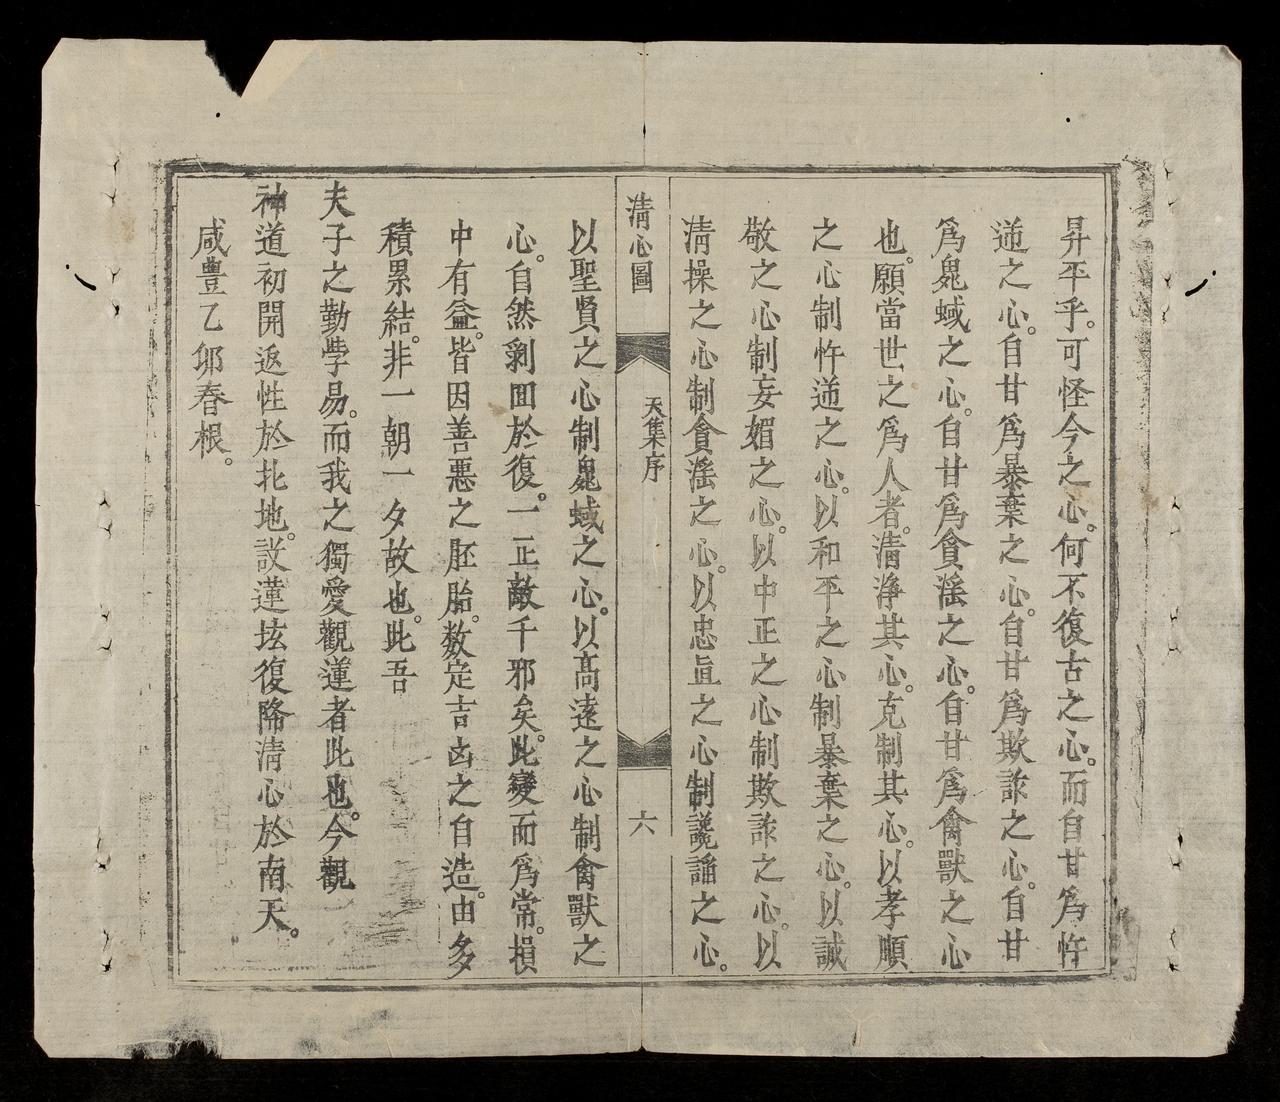 昇平乎。可怪今之心。何不復古之心。而自甘爲忤
逆之心。自甘爲暴棄之心。自甘爲欺詐之心。自甘
爲鬼蜮之心。自甘爲貪滛之心。自甘爲禽獸之心
也。願當世之爲人者。清淨其心。克制其心。以孝順
之心制忤逆之心。以和平之心制暴棄之心。以誠
敬之心制妄媚之心。以中正之心制欺詐之心。以
清操之心制貪滛之心。以忠直之心制讒謟之心。
清心圖
天集序
六
以聖賢之心制鬼蜮之心。以高遠之心制禽獸之
心。自然剝回於復。一正敵千邪矣。此變而爲常。損
中有益。皆因善惡之胚胎。数定吉凶之自造。由多
積累結。非一朝一夕故也。此吾
夫子之勤學易。而我之獨愛觀蓮者此也。今觀一
神道初開返性於北地。設蓮垓復降清心於南天。
咸豐乙卯春根。